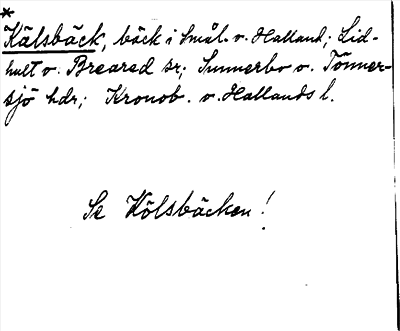 *
Kälsbäck, bäck i Smål. o. Halland; Lid-
hult o. Breared sr; Sunnerbo o. Tönner-
sjö hdr; Kronob. o. Hallands l.
Se Kölsbäcken!